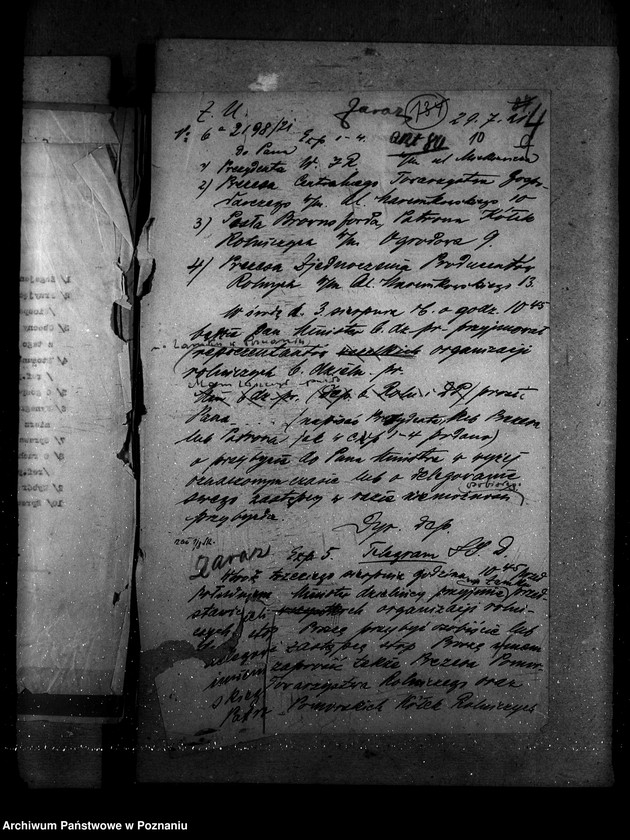 Ł. U. Zaraz 134 29.7.21 4
№ 6a 2198/21 Exp 1-4. 10
do Pana
1) Prezydenta W. I. R. w/m. ul. Mickiewicza
2) Prezesa Centralnego Towarzystwa Gospo-
darczego w/m. Al. Marcinkowskiego 10
3) Posła Brownsforda, Patrona Kółek
Rolniczych w/m. Ogrodowa 9.
4) Prezesa Zjednoczenia Producentów
Rolnych w/m Al. Marcinkowskiego 13
W środę d. 3 sierpnia rb. o godz. 10 45
będzie Pan Minister b. dz. pr. przyjmował
na Zamku w Poznaniu
reprezentantów wszelkich organizacji
rolniczych b. dzieln. pr.
Mam zaszczyt
Min. b. dz. pr. (Dep. b. Roln. i DP) prosić
Pana (napisać Prezydenta, lub Prezesa
lub Patrona jak w exp 1-4 podano)
o przybycie do Pana Ministra w wyżej
oznaczonym czasie lub o delegowanie
swego zastępcy w razie niemożności
osobistego
przybycia.
Dyr. dep.
Zaraz Exp 5. Telegram
Środę trzeciego sierpnia godzina 10 45 przed
na Zamku
południem Minister dzielnicy przyjmie przed-
stawicieli wszystkich organizacji rolni-
czych stop Proszę przybyć osobiście lub
delegować zastępcę stop Proszę
imieniem zaprosić także Prezesa Pomor-
skiego Towarzystwa Rolniczego oraz
Patr. Pomorskich Kółek Rolniczych
Archiwum Państwowe w Poznaniu